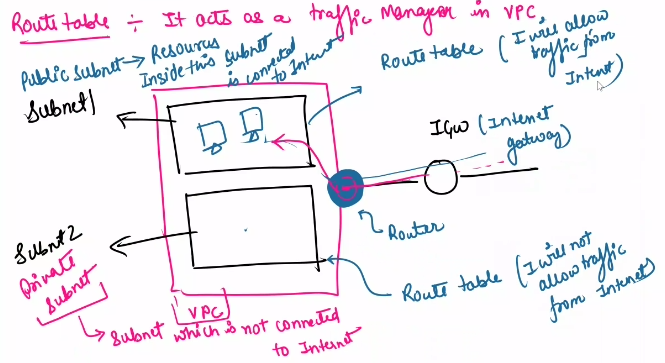 Route table ÷ It acts as a traffic Manager in VPC
Public Subnet → Resources
Inside this subnet
is connected
to Internet
Route table (I will allow
traffic from
Intenet)
Subnet1
IGW (Internet
gateway)
Router
Subnet2
Private
Subnet
Route table (I will not
allow traffic
from Internet)
VPC
Subnet which is not connected
to Internet